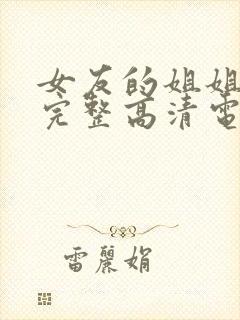 女友的姐姐
完整高清電
雷麗娟